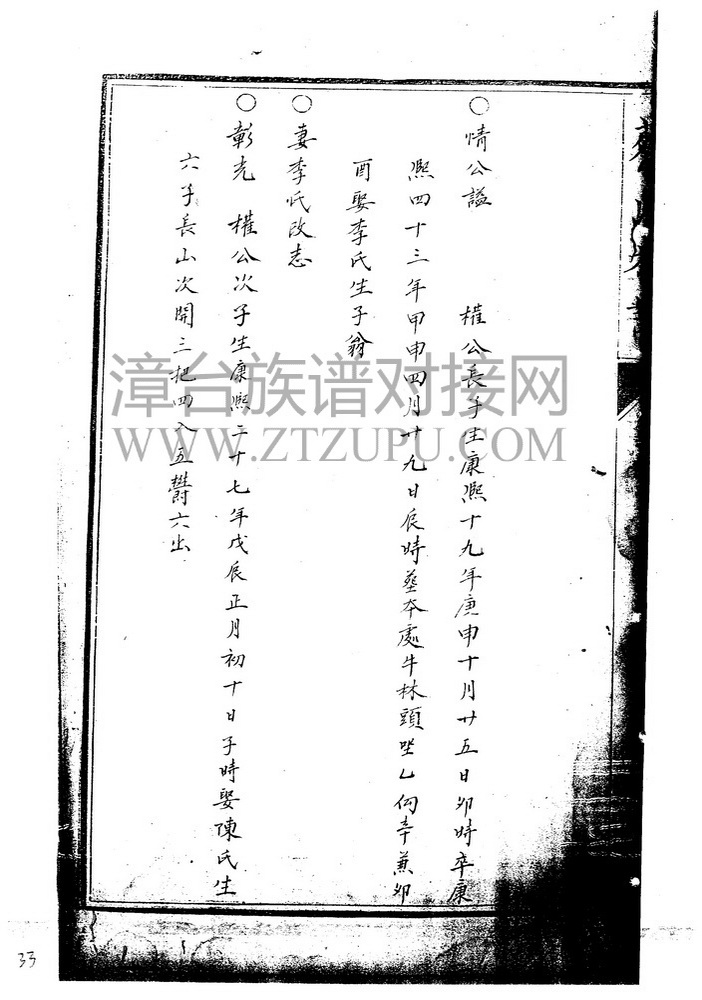 ○情公謚　權公長子生康熙十九年庚申十月廿五日卯時卒康
熙四十三年甲申四月廿九日辰時塟本處牛林頭坐乙向辛兼卯
酉娶李氏生子翁
○妻李氏改志
○彰光　權公次子生康熙二十七年戊辰正月初十日子時娶陳氏生
六子長山次開三把四入五欝六出
漳台族谱对接网
WWW.ZTZUPU.COM
33